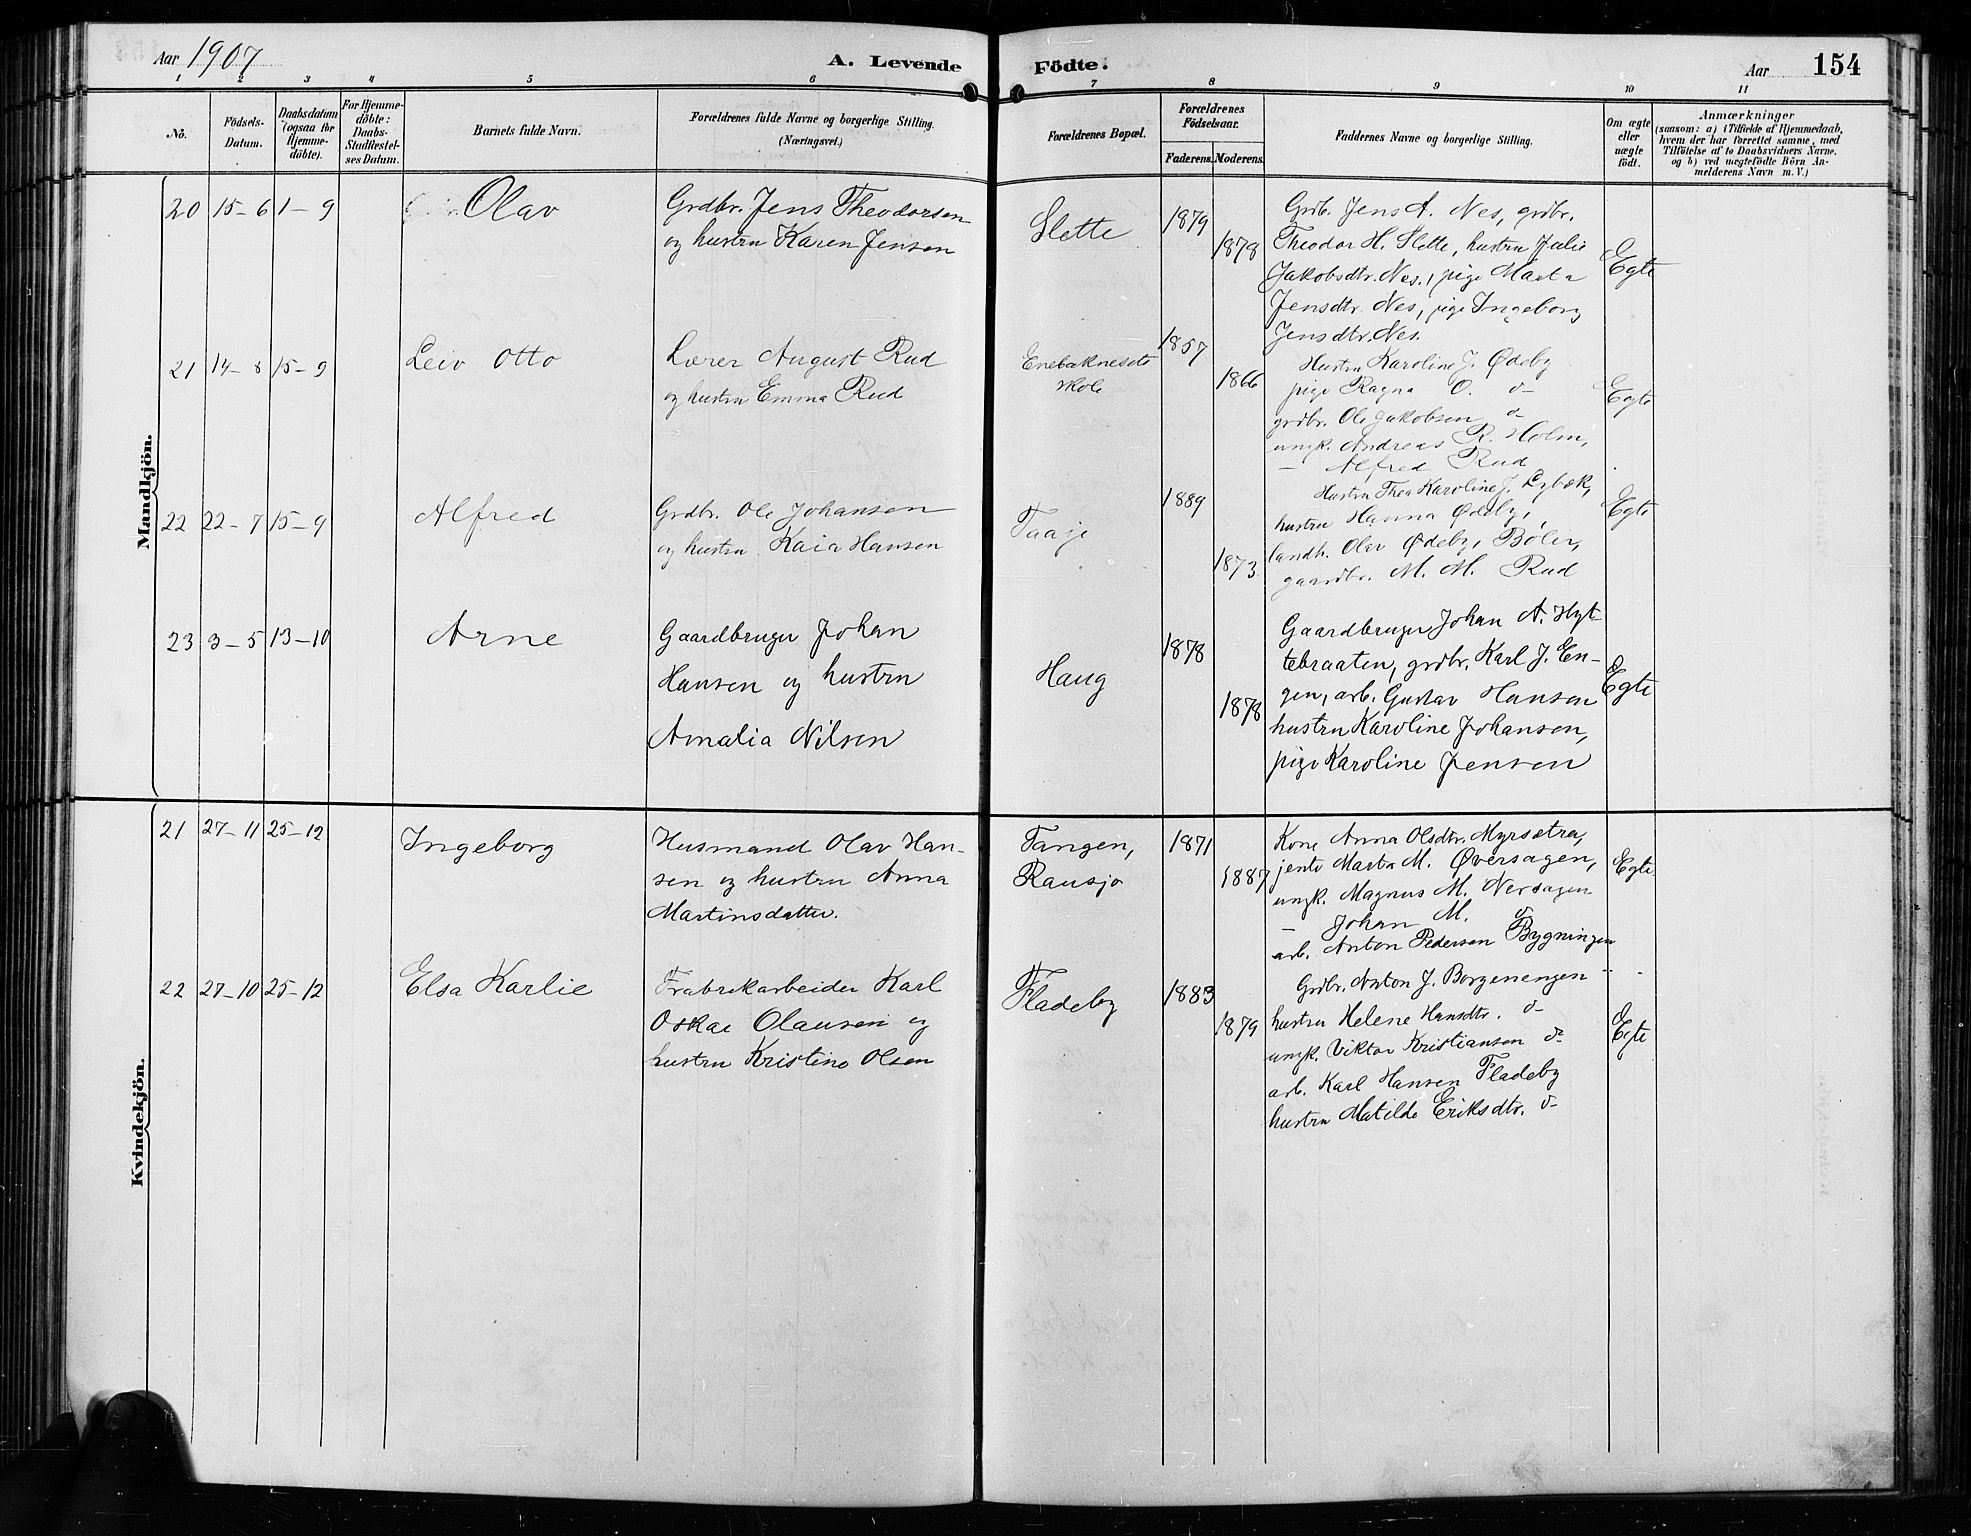 Aar 1907
A. Levende Födte.
Aar 154
1 2 3 4 5 6 7 8 9 10 11
No.
Födsels-
Datum.
Daabsdatum
(ogsaa for
Hjemme-
döbte).
For Hjemme-
döbte:
Daabs-
Stadfæstel-
ses Datum.
Barnets fulde Navn.
Forældrenes fulde Navne og borgerlige Stilling.
(Næringsvei.)
Forældrenes Bopæl.
Forældrenes
Födselsaar.
Faderens. Moderens.
Faddernes Navne og borgerlige Stilling.
Om ægte
eller
uægte
födt.
Anmærkninger
(saasom: a) i Tilfælde af Hjemmedaab,
hvem der har forrettet samme, med
Tilföielse af to Daabsvidners Navne.
og b) ved uægtefödte Börn An-
melderens Navn m. V.)
Mandkjön.
20 15-6 1-9 Olav
Grdbr. Jens Theodorsen
og hustru Karen Jensen
Slette
1879
1878
Grdb. Jens A. Nes, grdbr.
Theodor H. Slette, hustru Julie
Jakobsdtr. Nes, pige Marta
Jensdtr. Nes, pige Ingeborg
Jensdtr. Nes.
Egte
21 14-8 15-9 Leiv Otto
Lærer August Rud
og hustru Emma Rud
Enebaknesets
skole
1857
1866
Hustru Karoline J. Ødeby
pige Ragna O. d-
grdbr. Ole Jakobsen d-
ungk. Andreas R. Holm,
— Alfred Rud
Egte
22 22-7 15-9 Alfred
Grdbr. Ole Johansen
og hustru Kaia Hansen
Taaje
1889
1873
Hustru Thea Karoline J.
hustru Hanna Ødeby,
landh. Olav Ødeby, Böler,
gaardbr. M. M. Rud
Egte
23 3-5 13-10 Arne
Gaardbruger Johan
Hansen og hustru
Amalia Nilsen
Haug
1878
1878
Gaardbruger Johan A. Hyt-
tebraaten, grdbr. Karl J. En-
gen, arb. Gustav Hansen
hustru Karoline Johansen,
pige Karoline Jensen
Egte
Kvindekjön.
21 27-11 25-12 Ingeborg
Husmand Olav Han-
sen og hustru Anna
Martinsdatter.
Tangen,
Rausjø
1871
1887
Kone Anna Olsdtr. Myrsætra,
jente Marta M. Øversagen,
ungk. Magnus M. Nersagen
— Johan M. d-
arb. Anton Pedersen Bygningen
Egte
22 27-10 25-12 Elsa Karlie
Frabrekarbeider Karl
Oskar Olausen og
hustru Kristine Olsen
Fladeby
1883
1879
Grdbr. Anton J. Borgenengen
hustru Helene Hansdtr. d-
ungk. Viktor Kristiansen d-
arb. Karl Hansen Fladeby
hustru Matilde Eriksdtr. d-
Egte